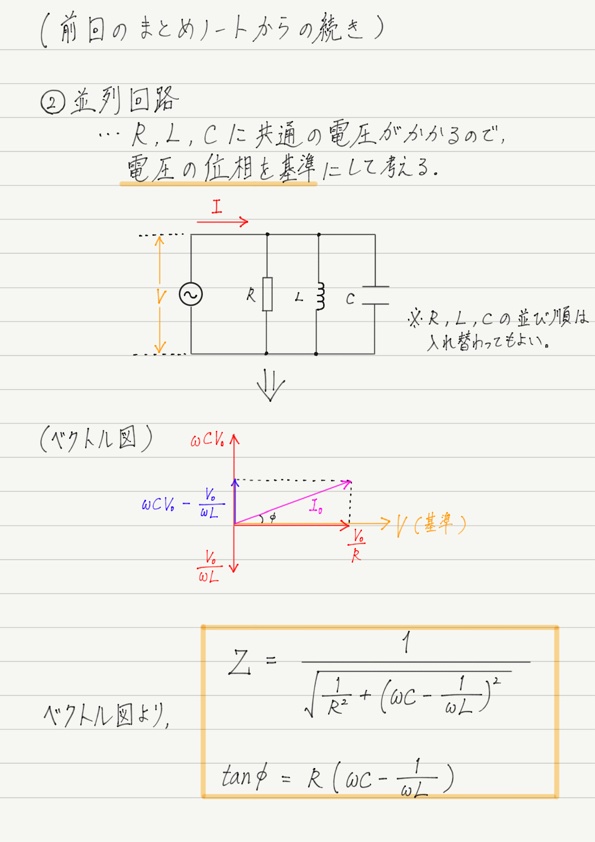 (前回のまとめノートからの続き)
②並列回路
… R, L, C に共通の電圧がかかるので,
電圧の位相を基準にして考える.
I
V
R
L
C
※R, L, Cの並び順は
入れ替わってもよい。
(ベクトル図)
ωCV₀
ωCV₀ - V₀/ωL
I₀
φ
V(基準)
V₀/R
V₀/ωL
Z = 1/√(1/R² + (ωC - 1/ωL)²)
ベクトル図より,
tanφ = R(ωC - 1/ωL)